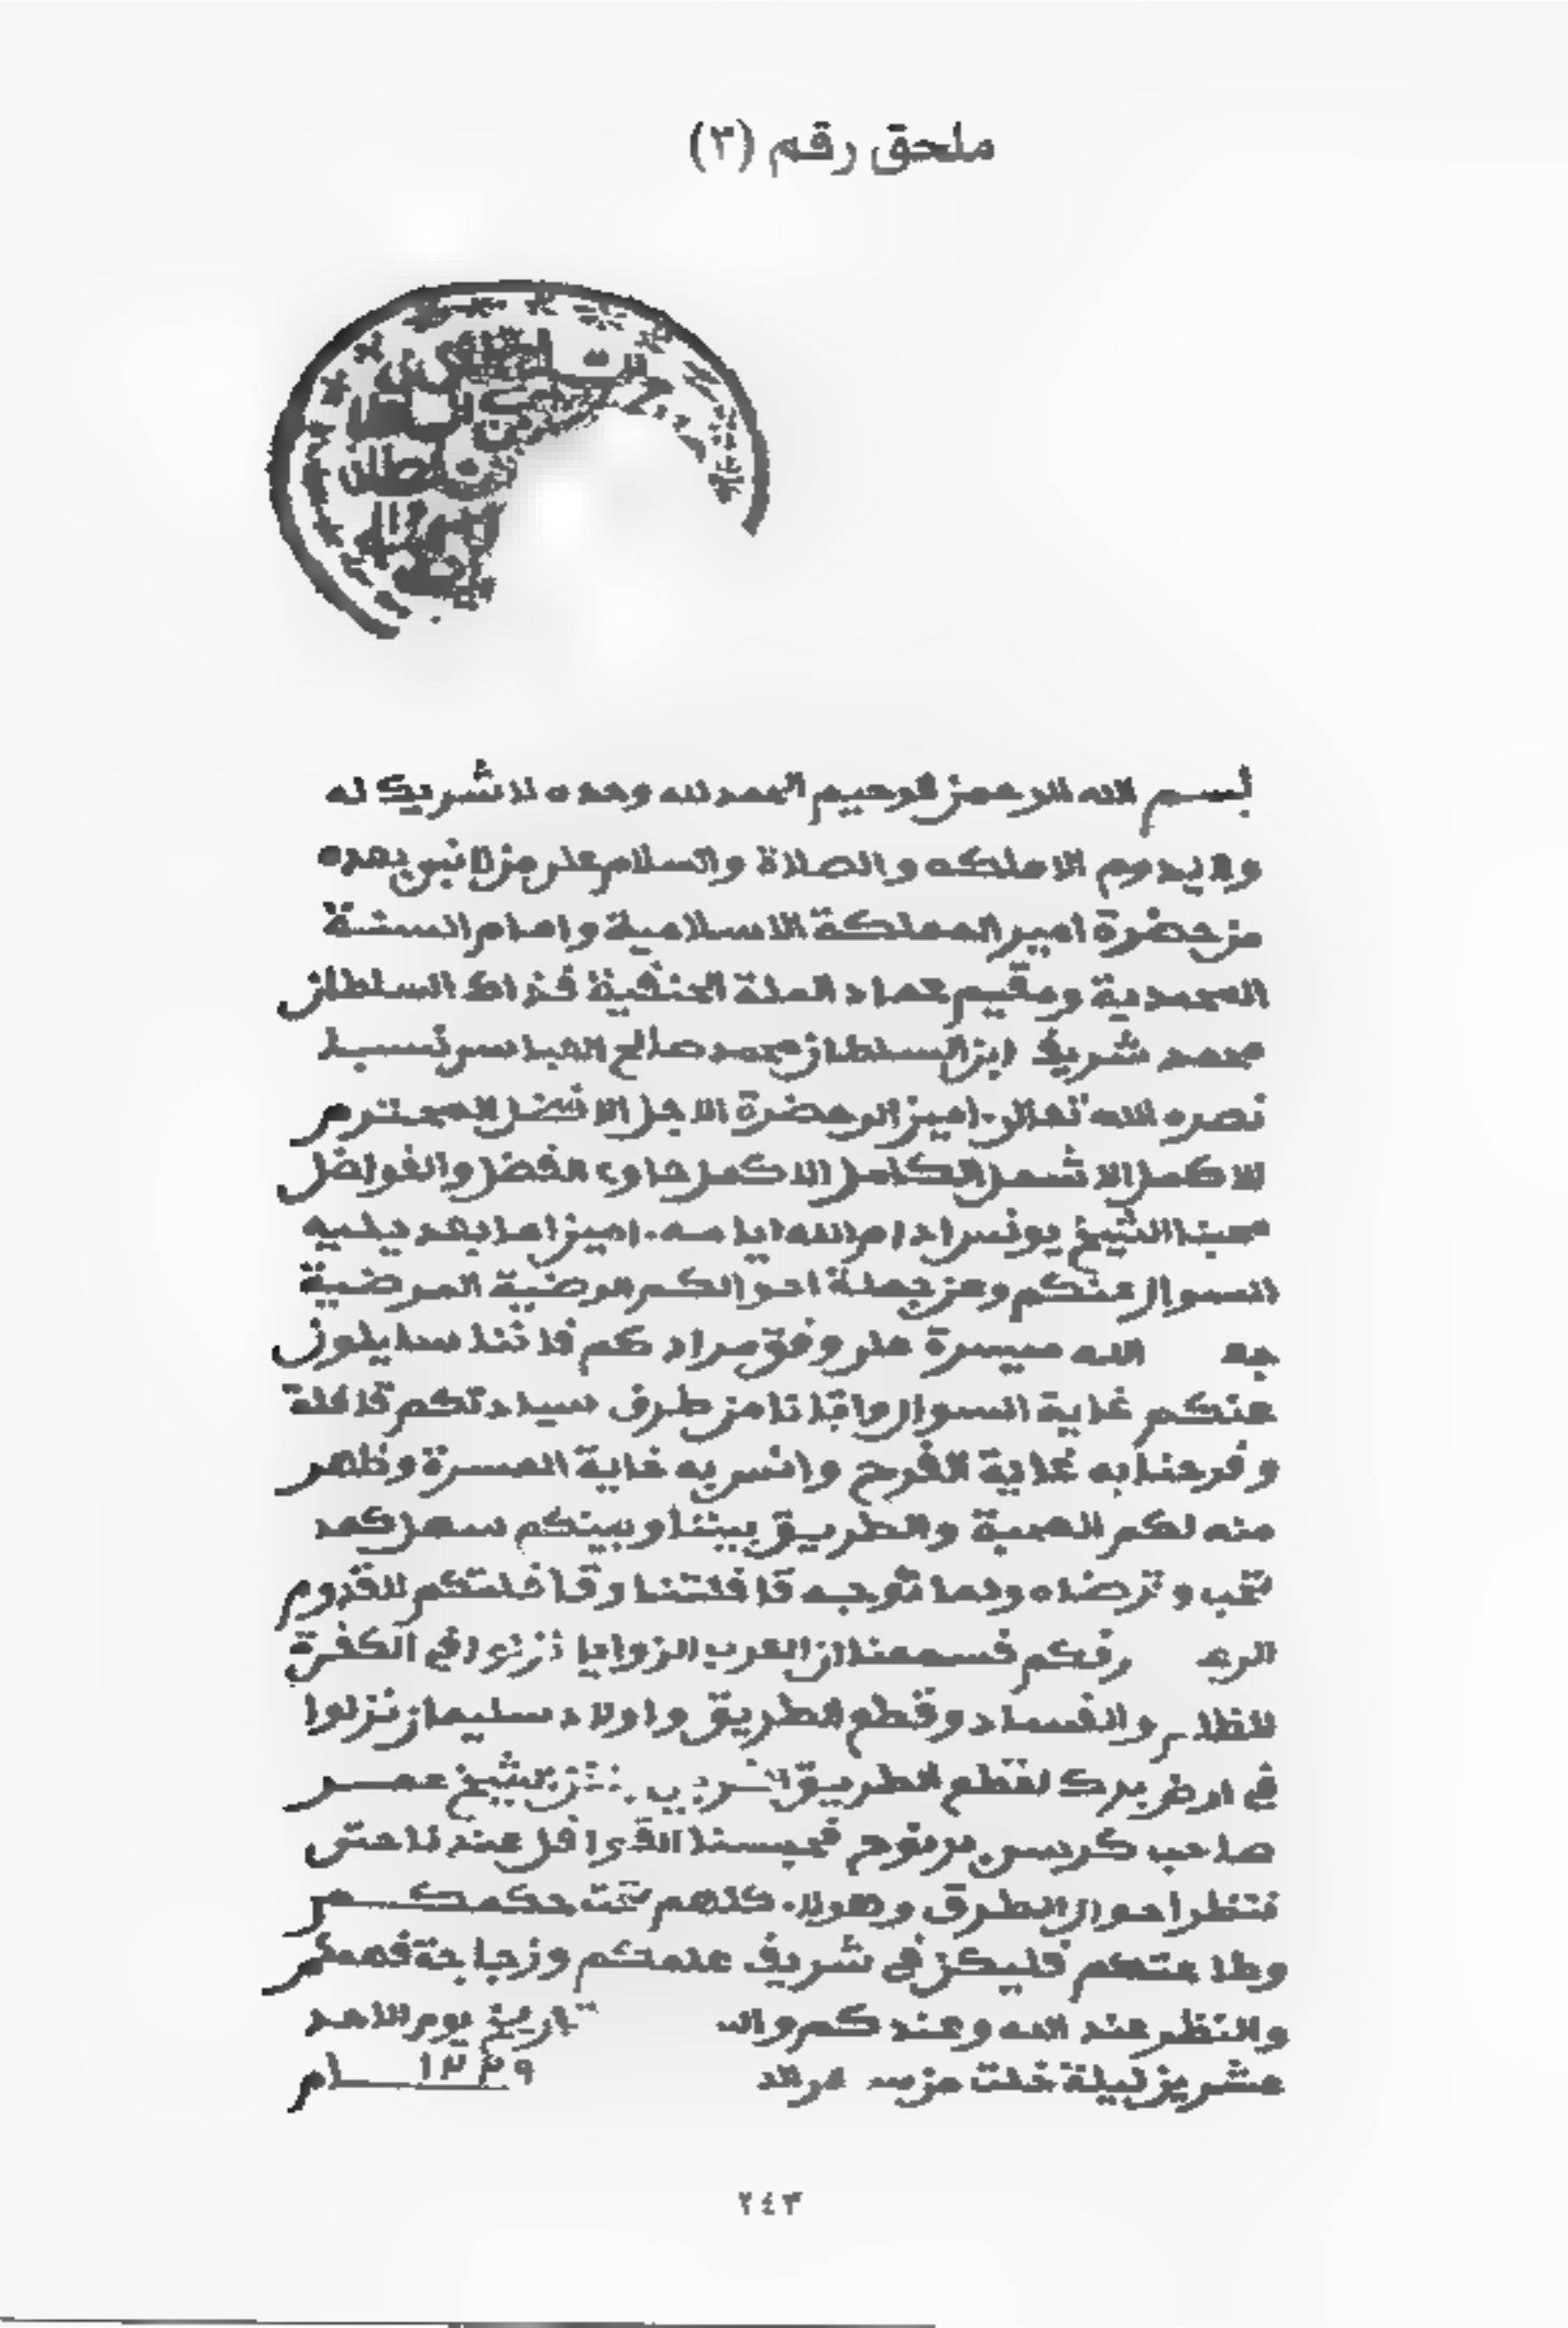 ملحق رقم (٣)
بسم الله الرحمن الرحيم الحمد لله وحده لا شريك له
ولا يدوم الا ملكه والصلاة والسلام على من لا نبي بعده
من حضرة امير المملكة الاسلامية وامام السنة
المحمدية ومقيم عماد الملة الحنفية السلطان
محمد شريف ابن السلطان محمد صالح العباسي نسبا
نصره الله تعالى امين الى حضرة الاجل الافضل المحترم
الاكمل الاشمل الكامل الاكمل حاوى الفضل والفواضل
محبنا الشيخ يونس ادام الله ايامه امين اما بعد يليه
السوال عنكم وعن جملة احوالكم الرضية المرضية
الله ميسرة على وفق مراد كم فاننا سايلون
عنكم غاية السوال واتانا من طرف سيادتكم قافلة
وفرحنا به غاية الفرح وانسر به غاية المسرة وظهر
منه لكم المحبة والطريق بيننا وبينكم سهل كما
تحب وترضاه ولما توجه قافلتنا وقافلتكم للقدوم
فسمعنا ان العرب الزوايا نزلوا في الكفرة
للظلم والفساد وقطع الطريق واولاد سليمان نزلوا
في ارض برك لقطع الطريق الشيخ عمر
صاحب فحبسنا القوافل عندنا حتى
ننتظر احوال الطرق وهولاء كلهم تحت حكمكم
وطاعتكم فليكن في شريف علمكم وزجاجة فهمكم
والنظر عند الله وعند كم تاريخ يوم الاحد
عشرين ليلة خلت من عام ١٢٣٩
٢٤٣